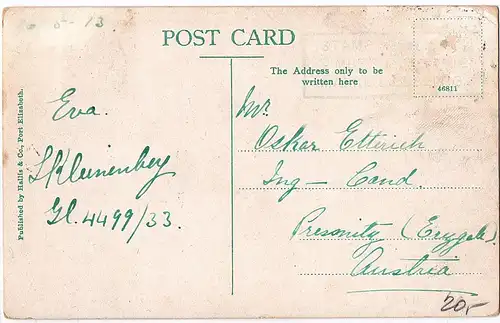 5-13
POST CARD
The Address only to be
written here
46811
Published by Hallis & Co., Port Elizabeth.
Eva.
S Kleinenberg
Gl. 4499/33.
Mr.
Oskar Etterich
Ing - Cand.
Presnitz (Erzgeb.)
Austria
20,-